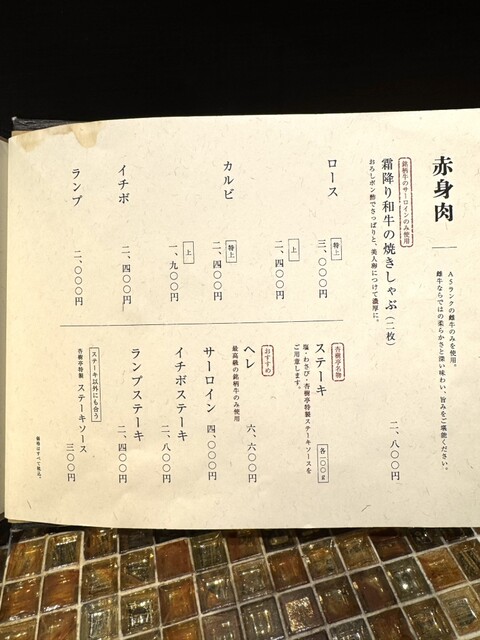 赤身肉
A5ランクの雌牛のみを使用。
雌牛ならではの柔らかさと深い味わい、旨みをご堪能ください。
銘柄牛のサーロインのみ使用
霜降り和牛の焼きしゃぶ(二枚)
二、八〇〇円
おろしポン酢でさっぱりと、美人卵につけて濃厚に。
ロース
特上
三、〇〇〇円
上
二、四〇〇円
カルビ
特上
二、四〇〇円
上
一、九〇〇円
イチボ
二、四〇〇円
ランプ
二、〇〇〇円
杏樹亭名物
ステーキ
各一〇〇g
塩・わさび・杏樹亭特製ステーキソースを
ご用意します。
おすすめ
ヘレ
六、六〇〇円
最高級の銘柄牛のみ使用
サーロイン
四、〇〇〇円
イチボステーキ
二、八〇〇円
ランプステーキ
二、四〇〇円
ステーキ以外にも合う
杏樹亭特製
ステーキソース
三〇〇円
価格はすべて税込。